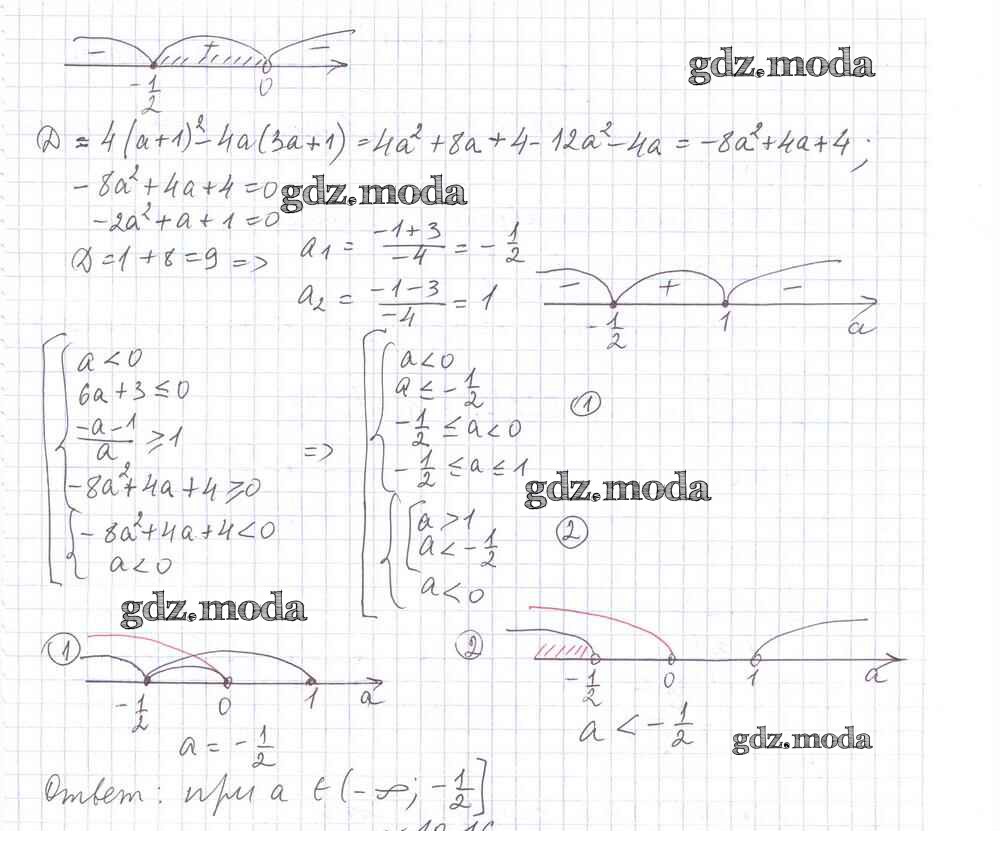 - + -
-1/2 0
gdz.moda
D = 4(a+1)² - 4a(3a+1) = 4a² + 8a + 4 - 12a² - 4a = -8a² + 4a + 4;
-8a² + 4a + 4 = 0
gdz.moda
-2a² + a + 1 = 0
D = 1 + 8 = 9 =>
a₁ = (-1+3)/(-4) = -1/2
a₂ = (-1-3)/(-4) = 1
- + -
-1/2 1 a
a < 0
6a + 3 ≤ 0
(-a-1)/a ≥ 1
-8a² + 4a + 4 ≥ 0
-8a² + 4a + 4 < 0
a < 0
=>
a < 0
a ≤ -1/2
-1/2 ≤ a < 0
-1/2 ≤ a ≤ 1
①
gdz.moda
a > 1
a < -1/2
a < 0
②
gdz.moda
①
-1/2 0 1 a
a = -1/2
②
-1/2 0 1 a
a < -1/2
gdz.moda
Ответ: при a ∈ (-∞; -1/2]